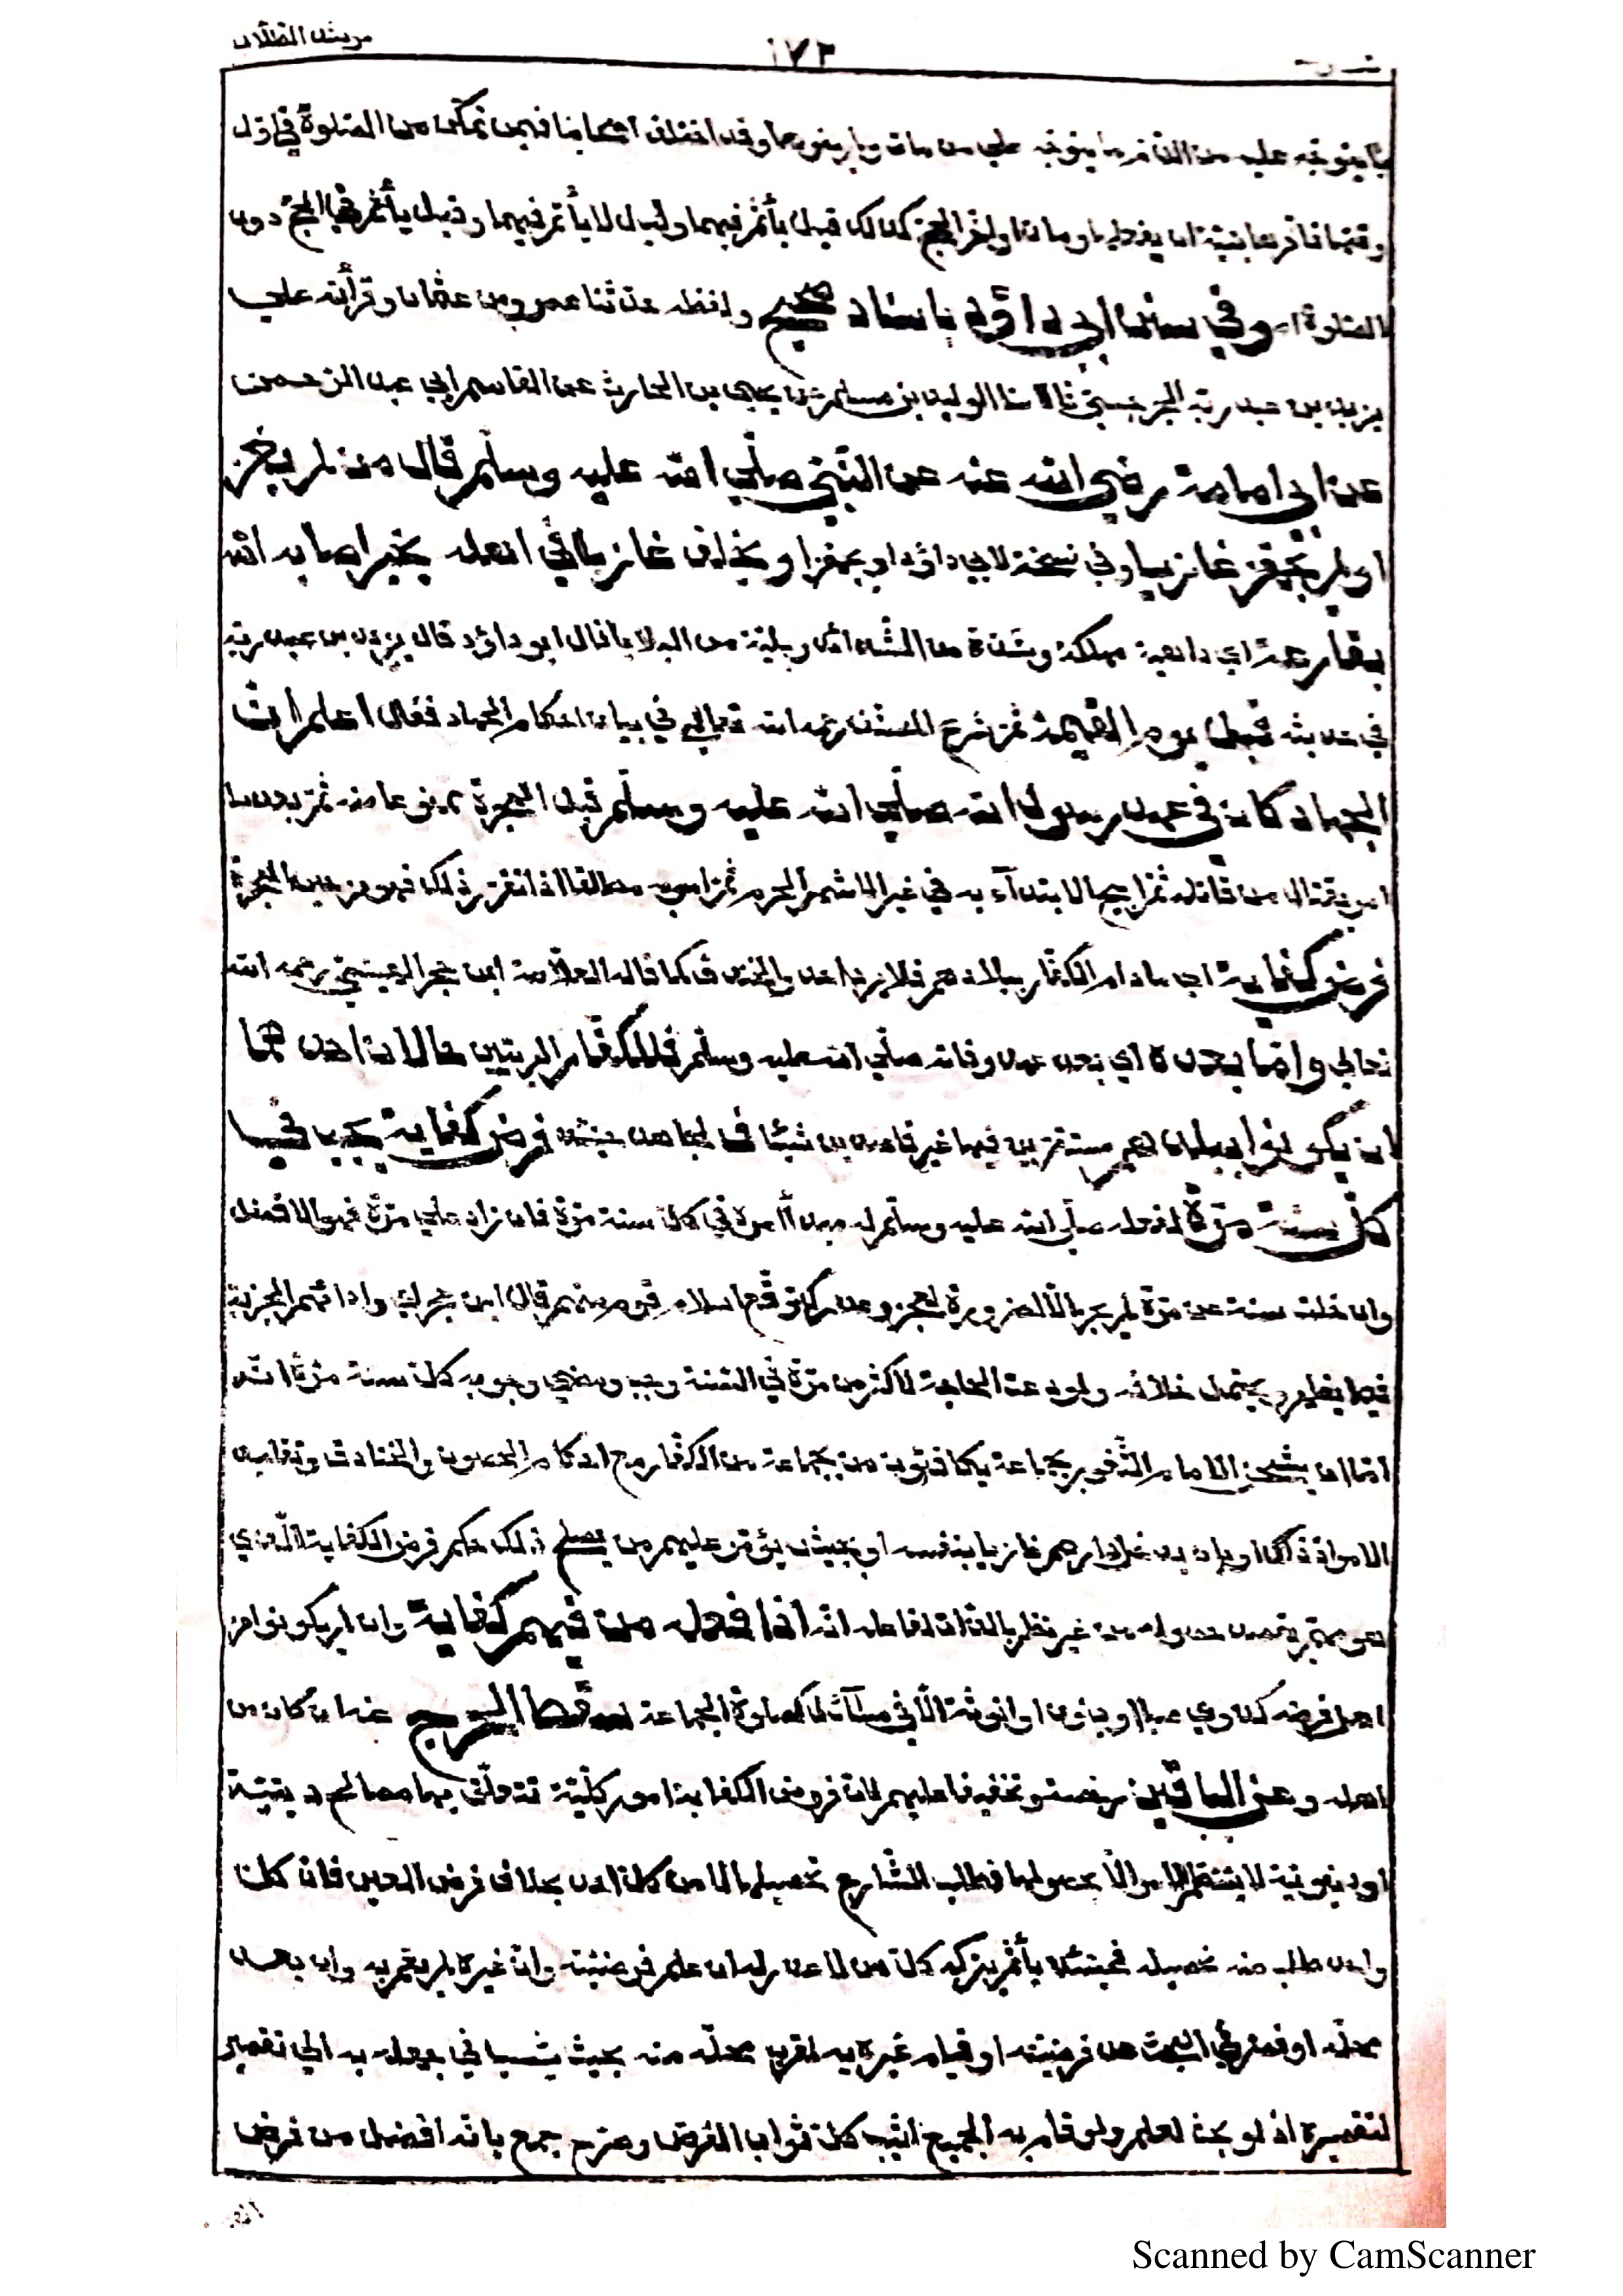 مرشد الطلاب
١٧٣
عليه من الذم ما يتوجه على من مات ولم ينوهما وقد اختلف اصحابنا فيمن تمكن من الصلوة في اول
وقتها فاخرها بنية ان يفعلها ومات او اخر الحج كذلك قيل يأثم فيهما وقيل لا يأثم فيهما وقيل يأثم في الحج دون
الصلوة وفي سنن ابي داؤد باسناد صحيح ولفظه حدثنا عمرو بن عثمان وقرأته على
يزيد بن عبد ربه الجرجسي قالا نا الوليد بن مسلم عن يحيى بن الحارث عن القاسم ابي عبد الرحمن
عن ابي امامة رضي الله عنه عن النبي صلي الله عليه وسلم قال من لم يغز
او لم يجهز غازيا وفي نسخة لابي داؤد او يجهز او يخلف غازيا في اهله بخير اصابه الله
بقارعة اي داهية مهلكة وشدة من الشدائد وبلية من البلايا قال ابو داؤد قال يزيد بن عبد ربه
في حديثه قبل يوم القيمة ثم شرع المصنف رحمه الله تعالى في بيان احكام الجهاد فقال اعلم ان
الجهاد كان في عهد رسول الله صلي الله عليه وسلم قبل الهجرة ممنوعا منه ثم بعدها
امر بقتال من قاتله ثم ابيح الابتدآء به في غير الاشهر الحرم ثم امر به مطلقا اذا تقرر ذلك فهو من حين الهجرة
فرض كفاية اي ما دام الكفار ببلادهم كما قاله العلامة ابن حجر الهيتمي رحمه الله
تعالي واما بعده اي بعد عهد وفاته صلي الله عليه وسلم فللكفار الحربيين حالان احدهما
ان يكونوا ببلادهم مستقرين فيها غير قاصدين شيئا فالجهاد حينئذ فرض كفاية يجب في
كل سنة مرة لفعله صلي الله عليه وسلم له في كل سنة مرة فان زاد علي مرة فهو الافضل
سنة عن مرة لم يجز الا لضرورة لعجزو عدو كتوقع اسلام قوم منهم قال ابن حجر او ادائهم الجزية
فيما يظهر ويحتمل خلافه ولو دعت الحاجة لاكثر من مرة في السنة وجب ومعني وجوبه كل سنة مرة انه
اما ان يشحن الامام الثغور بجماعة يكافئون من بجماعة من الكفار مع احكام الحصون والخنادق وتقليد
الامراء ذلك او بان يدخل دارهم غازيا بنفسه او بجيش يؤمر عليهم من يصلح لذلك وحكم فرض الكفاية الذي
هو مهم يقصد حصوله من غير نظر بالذات لفاعله انه اذا فعله من فيهم كفاية وان لم يكونوا من
اهل فرضه كذوي صبا او جنون او انوثة الا في مسآئل كصلوة الجماعة سقط الحرج عنه ان كان من
اهله وعن الباقين رخصة وتخفيفا عليهم لان فروض الكفاية امور كلية تتعلق بها مصالح دينية
او دنيوية لا ينتظم الامر الا بحصولها فطلب الشارع تحصيلها لا من كل احد بخلاف فرض العين فان كل
واحد طلب منه تحصيله فحينئذ يأثم بتركه كل من لا عذر له ان علم فرضيته وان غيره لم يقم به وان بعد
محله او قصر في البحث عن فرضيته او قيام غيره به لقرب محله منه بحيث ينسب في جهله به الي تقصير
لتقصيره اذ لو بحث لعلم ولو قام به الجميع اثيب كل ثواب الفرض وصرح جمع بانه افضل من فرض
Scanned by CamScanner